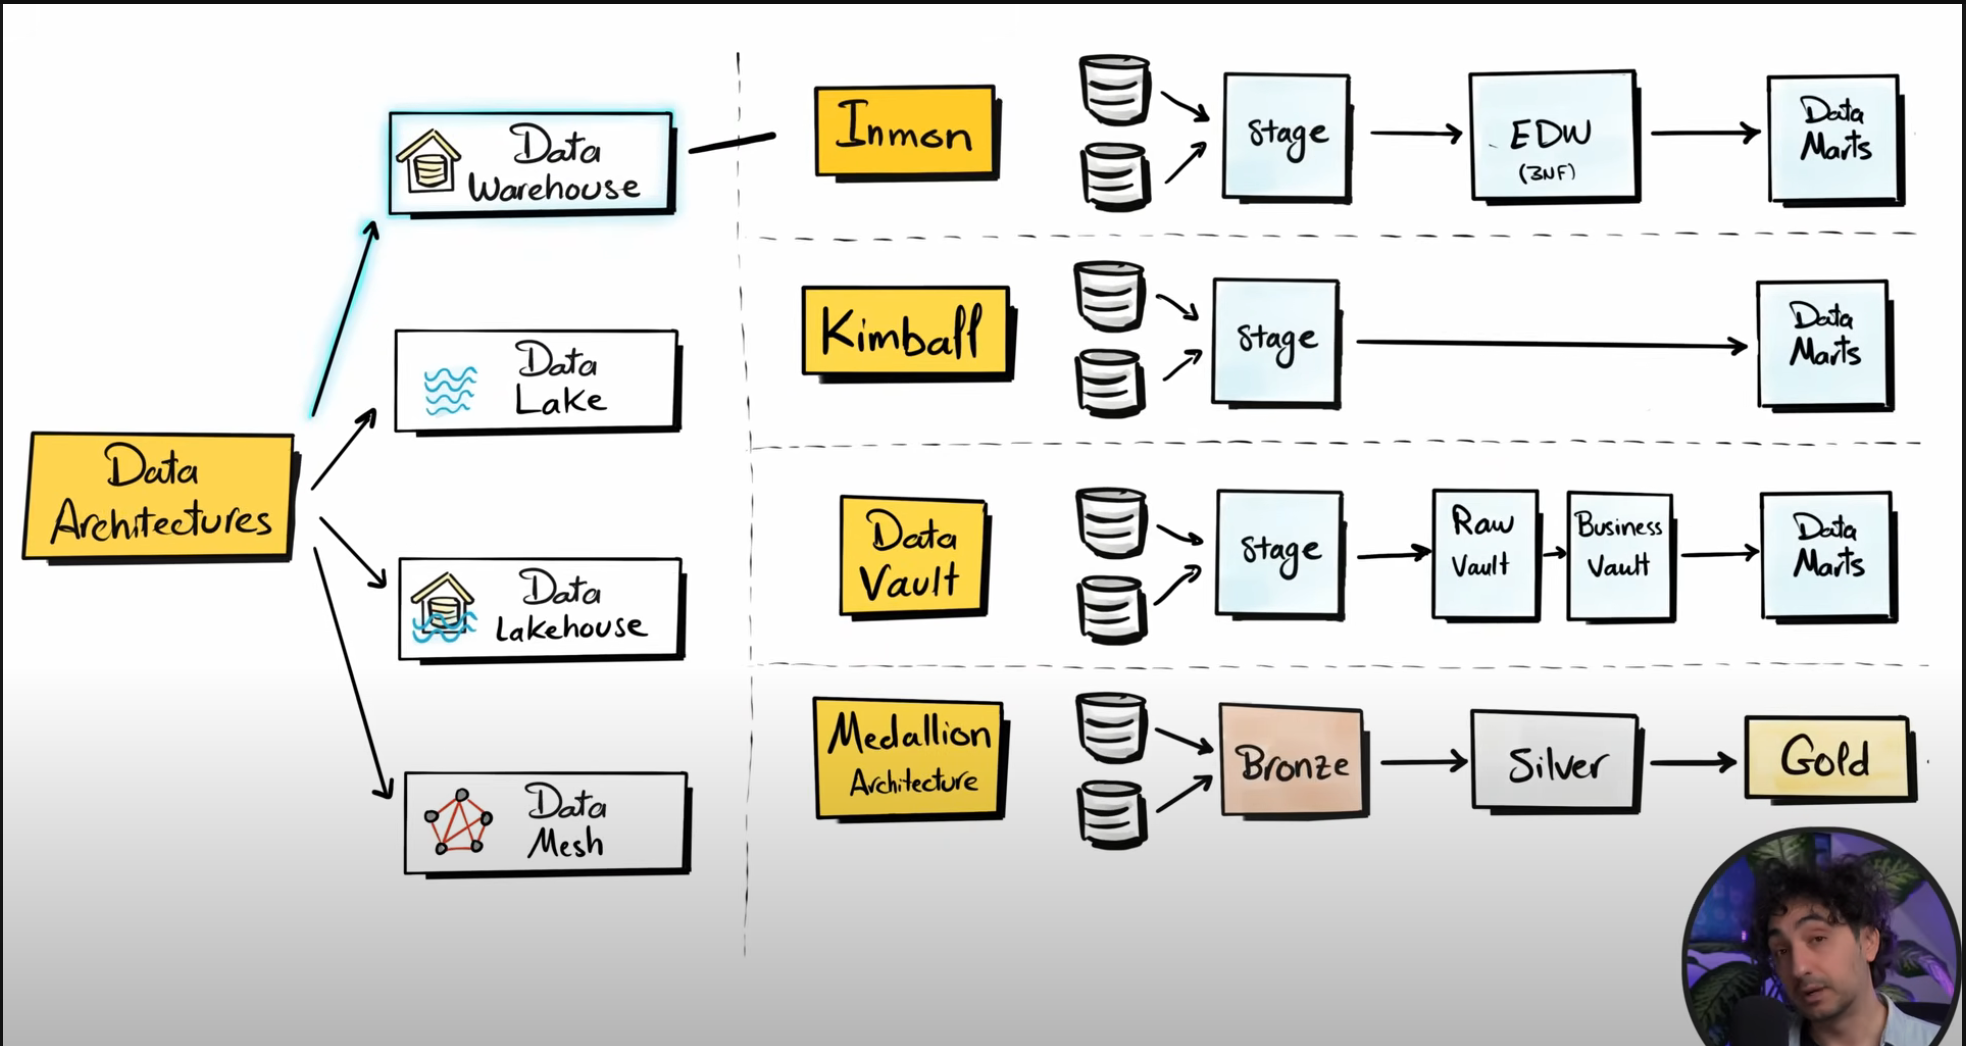 Data
Architectures
Data
Warehouse
Data
Lake
Data
Lakehouse
Data
Mesh
Inmon
Stage
EDW
(3NF)
Data
Marts
Kimball
Stage
Data
Marts
Data
Vault
Stage
Raw
Vault
Business
Vault
Data
Marts
Medallion
Architecture
Bronze
Silver
Gold